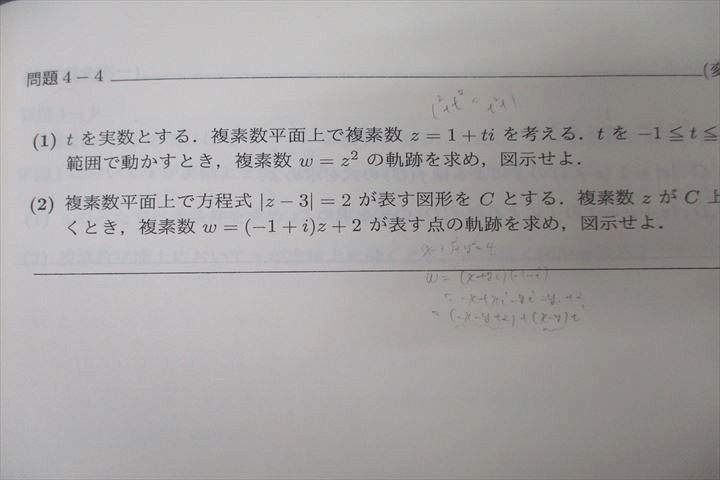 問題4-4
(1) t を実数とする．複素数平面上で複素数 z = 1 + ti を考える．t を −1 ≦ t ≦
範囲で動かすとき，複素数 w = z² の軌跡を求め，図示せよ．
(2) 複素数平面上で方程式 |z − 3| = 2 が表す図形を C とする．複素数 z が C 上
くとき，複素数 w = (−1 + i)z + 2 が表す点の軌跡を求め，図示せよ．
= (-x-y+2)+(x-y)i